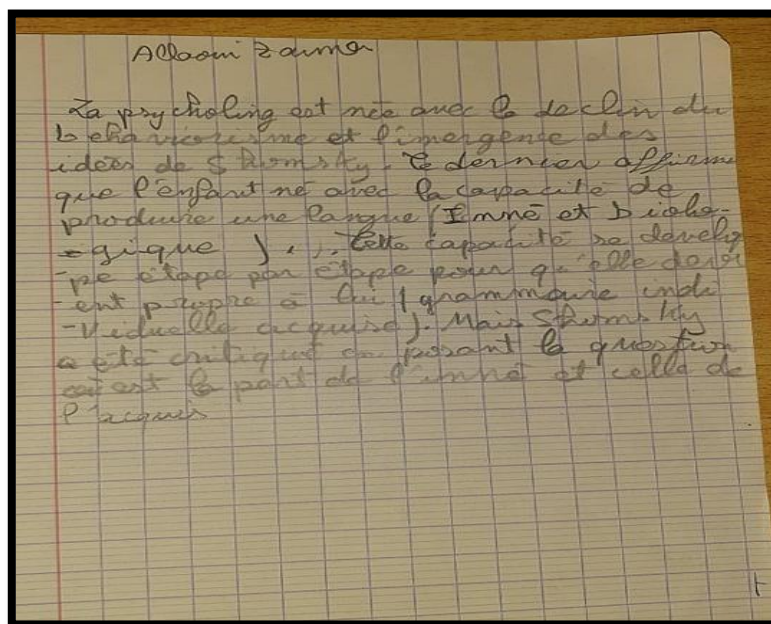 Allaoui Zaima
La psycholing est née avec le declin du
behaviorisme et l'imergence des
idées de Shomsky. Ce dernier affirme
que l'enfant né avec la capacité de
produire une langue (Inné et biolo-
-gique ). Cette capacité se develop
-pe étape par étape pour qu'elle devi
-ent propre à lui (grammaire indi
-viduelle acquise). Mais Shomsky
a été critiqué en posant la question
où est la part de l'inné et celle de
l'acquis